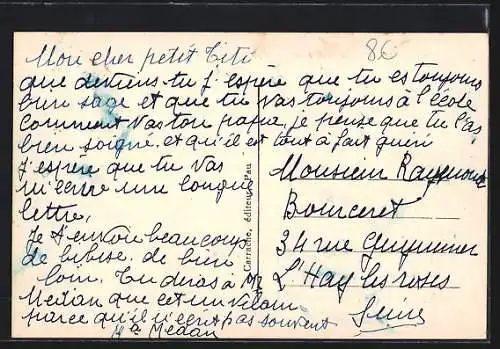 86
Mon cher petit Titi
que deviens tu j'espère que tu es toujours
bien sage et que tu vas toujours à l'école
comment vas ton papa, je pense que tu l'as
bien soigné, et qu'il est tout à fait guéri
J'espère que tu vas
m'écrire une longue
lettre,
Je t'envoie beaucoup
de bibise de bien
loin. Tu diras à Mr
Medan que cet un vilain
parce qu'il n'écrit pas souvent
Medan
Carrache, éditeur, Pau
Monsieur Raymond
Bourceret
34 rue Guynemer
L'Hay les roses
Seine